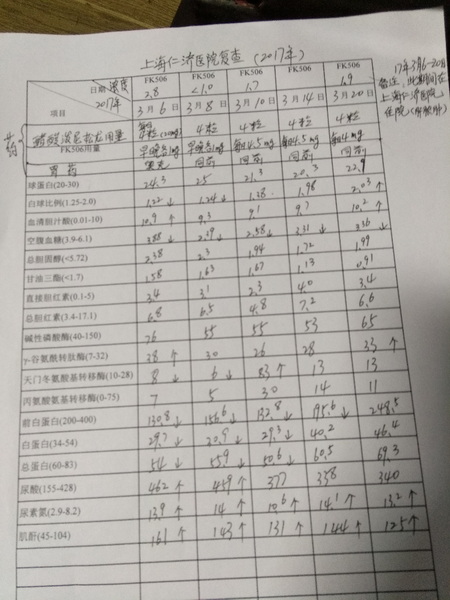 上海仁济医院复查（2017年）
日期 浓度 FK506 2.8 FK506 <1.0 FK506 1.7 FK506 FK506 1.9
项目 2017年 3月6日 3月8日 3月10日 3月14日 3月20日
17年3月6-20日
上海仁济医院
住院
醋酸泼尼松应用量 4粒 4粒 4粒 4粒
FK506用量 早晚各1mg 早晚各1mg 每日4.5mg 每日4.5mg 每日4.5mg
胃药 同药 同药 同药 同药
球蛋白(20-30) 24.3 25 21.3 20.3 22.9
白球比例(1.25-2.0) 1.22↓ 1.24↓ 1.38 1.98 2.03↑
血清胆汁酸(0.01-10) 10.9↑ 9.3 9.1 9.7 10.2↑
空腹血糖(3.9-6.1) 3.88↓ 2.39↓ 2.58↓ 3.31↓ 3.36↓
总胆固醇(<5.72) 2.38 2.3 1.94 1.72 1.99
甘油三酯(<1.7) 1.58 1.63 1.67 1.13 0.91
直接胆红素(0.1-5) 3.4 3.1 2.3 4.0 3.4
总胆红素(3.4-17.1) 6.8 6.5 4.8 7.2 6.6
碱性磷酸酶(40-150) 26 55 55 53 65
γ-谷氨酰转肽酶(7-32) 38↑ 30 26 28 33↑
天门冬氨酸基转移酶(10-28) 8↓ 6↓ 83↑ 13 13
丙氨酸氨基转移酶(0-75) 7 5 30 14 11
前白蛋白(200-400) 130.8↓ 156.6↓ 132.8↓ 195.6↓ 248.5
白蛋白(34-54) 29.7↓ 30.9↓ 29.3↓ 40.2 46.4
总蛋白(60-83) 54↓ 55.9↓ 50.6↓ 60.5 69.3
尿酸(155-428) 462↑ 459↑ 377 338 340
尿素氮(2.9-8.2) 13.9↑ 14↑ 10.6↑ 14.1↑ 13.2↑
肌酐(45-104) 161↑ 143↑ 131↑ 144↑ 125↑